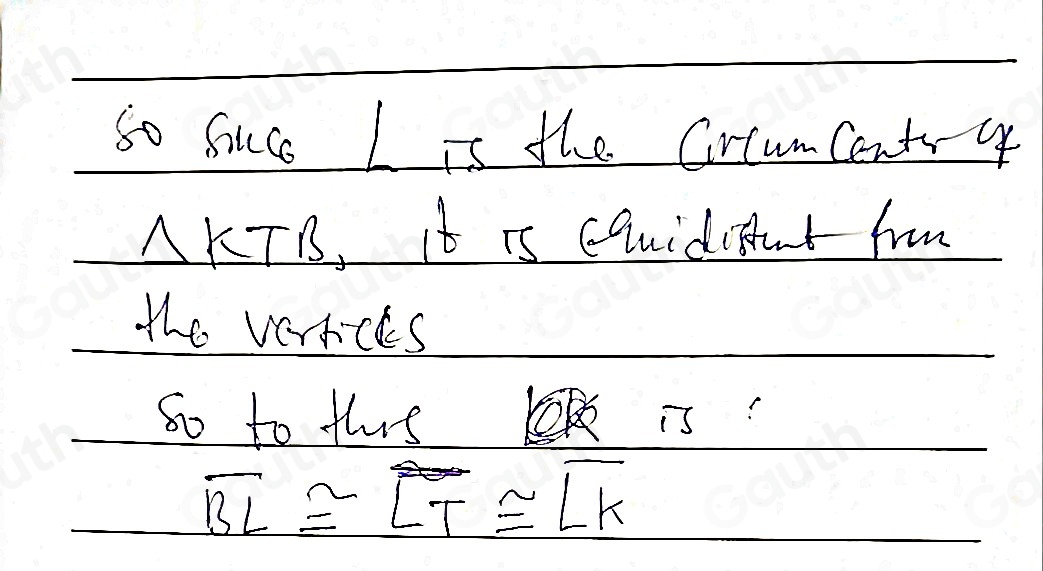 So since L is the CircumCenter of
△KTB, it is equidistant from
the vertices
So to this is :
BL ≅ LT ≅ LK